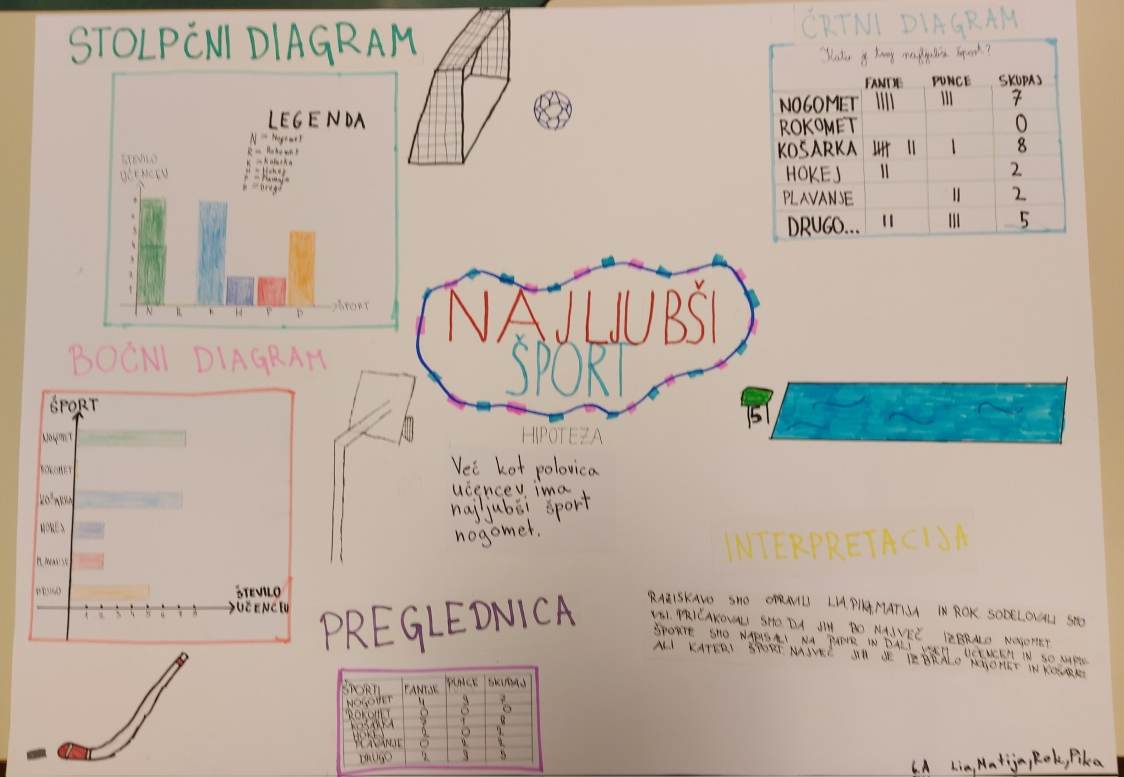 STOLPČNI DIAGRAM
LEGENDA
N = Nogomet
R = Rokomet
K = Košarka
H = Hokej
P = Plavanje
D = Drugo
ŠTEVILO
UČENCEV
N R K H P D
ŠPORT
ČRTNI DIAGRAM
Kateri je tvoj najljubši šport?
FANTJE PUNCE SKUPAJ
NOGOMET IIII III 7
ROKOMET 0
KOŠARKA IIII II I 8
HOKEJ II 2
PLAVANJE II 2
DRUGO... II III 5
NAJLJUBŠI
ŠPORT
BOČNI DIAGRAM
ŠPORT
NOGOMET
ROKOMET
KOŠARKA
HOKEJ
PLAVANJE
DRUGO
1 2 3 4 5 6 7 8
ŠTEVILO
UČENCEV
5
HIPOTEZA
Več kot polovica
učencev ima
najljubši šport
nogomet.
INTERPRETACIJA
RAZISKAVO SMO OPRAVILI LIA, PIKA, MATIJA IN ROK SODELOVALI SMO
VSI. PRIČAKOVALI SMO DA JIH BO NAJVEČ IZBRALO NOGOMET.
ŠPORTE SMO NAPISALI NA PAPIR IN DALI VSEM UČENCEM IN SO NAPIS-
ALI KATERI ŠPORT NAJVEČ JIH JE IZBRALO NOGOMET IN KOŠARKO
PREGLEDNICA
ŠPORTI FANTJE PUNCE SKUPAJ
NOGOMET 4 3 7
ROKOMET 0 0 0
KOŠARKA 1 8
HOKEJ 2 0 2
PLAVANJE 0 2 2
DRUGO 2 3 5
6.A Lia, Matija, Rok, Pika